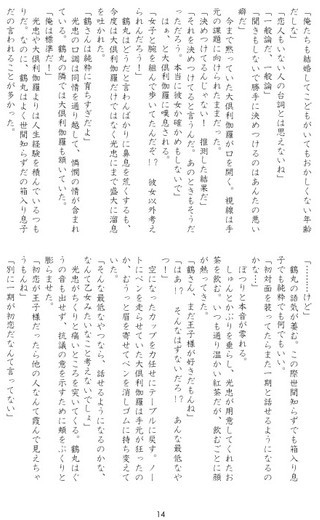 「俺たちも結婚してこどもがいてもおかしくない年齢
だしな」
「恋人もいない人の台詞とは思えないね」
「一般論だ、一般論」
「聞きもしないで勝手に決めつけるのはあんたの悪い
癖だ」
今まで黙っていた大倶利伽羅が口を開く。視線は手
元の課題に向けられたままだった。
「決めつけてるんじゃない！　推測した結果だ」
「それを決めつけてると言うんだ。あのときもそうだ
っただろう。本当に彼女か確かめもしないで」
はぁ、と大倶利伽羅に嘆息される。
「女子と腕を組んで歩いてたんだぞ！？　彼女以外考え
られんだろう！」
どうだ！　と言わんばかりに鼻息を荒くするも、
今度は大倶利伽羅だけではなく光忠にまで盛大に溜息
を吐かれた。
「鶴さんは純粋に育ちすぎだよ」
光忠の口調は同情を通り越して、憐憫の情が含まれ
ている。鶴丸の隣では大倶利伽羅も頷いていた。
「俺は標準だ！」
光忠や大倶利伽羅よりは人生経験を積んでいるつも
りだ。なのに、鶴丸はよく世間知らずだの箱入り息子
だの言われることが多かった。
「……けど」
鶴丸の語気が萎む。この際世間知らずでも箱入り息
子でも純粋でも何でもいい。
「初対面を装ってたらまた一期と話せるようになるの
かな…」
ぽつりと本音が零れる。
しゅんとかぶりを垂らし、光忠が用意してくれたお
茶を飲む。いつも通り温かい紅茶だが、飲むごとに顔
が熱ってきた。
「鶴さん、まだ王子様が好きだもんね」
「はあ！？　そんなはずないだろ！？　あんな最低なや
つ！」
空になったカップを力任せにテーブルに戻す。ノー
トにペンを走らせていた大倶利伽羅は手元が狂ったの
か、むうっと眉を寄せてペンを消しゴムに持ち変えて
いる。
「そんな最低なやつなら、話せるようになるのかな、
なんて乙女みたいなこと考えないでしょ」
光忠がちくりと痛いところを突いてくる。鶴丸はぐ
うの音も出せず、抗議の意を示すために頬をぷくりと
膨らませる。
「初恋が王子様だったら他の人なんて霞んで見えちゃ
うもんね」
「別に一期が初恋だなんて言ってない」
14